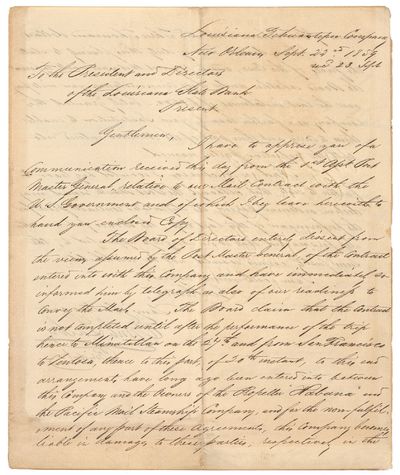 Louisiana Tehuantepec Company
New Orleans Sept. 22nd 1859
To the President and Directors
of the Louisiana State Bank
Present
Gentlemen,
I have to apprise you of a
Communication received this day from the 1st Asst Post
Master General, relative to our Mail Contract with the
U. S. Government and of which I beg leave herewith to
hand you enclosed Copy
The Board of Directors entirely dissent from
the view assumed by the Post Master General of the Contract
entered into with this Company and have immediately so
informed him by telegraph as also of our readiness to
Convey the Mail. The Board claim that the Contract
is not completed until after the performance of the trip
hence to Minatitlan on the 27th and from San Francisco
to Ventosa, thence to this port, of 20th instant, to this end
arrangements have long ago been entered into between
this Company and the Owners of the Propeller "Habana" and
the Pacific Mail Steamship Company, and for the non-fulfil-
-ment of any part of these Agreements, this Company becomes
liable in damages to these parties, respectively, in the